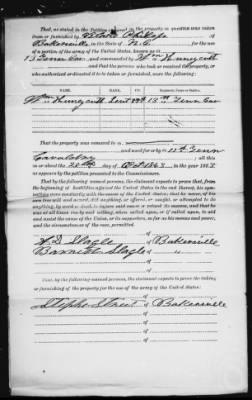 That, as stated in the Petition
the property in question was taken
from or furnished by
of
Bakersville, in the State of N.C. for the use
of a portion of the army of the United States, known as
13 Tenn Cav, and commanded by Wm
and that the persons who took or received the property, or
who authorized or directed it to be taken or furnished, were the following:
Wm Lieut 13th Tenn Cav
of
of
of
That the property was removed to
and used for or by 13th Tenn
Cavalry, all this
on or about the day of Oct 1863, in the year 186
as appears by the petition presented to the Commissioners.
That, by the following named persons, the claimant expects to prove that, from the
beginning of hostilities against the United States to the end thereof, his sym-
pathies were constantly with the cause of the United States; that he never, of his
own free will and accord, did anything, or offered, or sought, or attempted to do
anything, by word or deed, to injure said cause or retard its success, and that he
was at all times ready and willing, when called upon, or if called upon, to aid
and assist the cause of the Union, or its supporters, so far as his means and power,
and the circumstances of the case, permitted.
Slagle of Bakersville
Slagle of "
of
of
of
That, by the following named persons, the claimant expects to prove the taking
or furnishing of the property for the use of the army of the United States:
Stephen Street of Bakersville
of
of
of
of